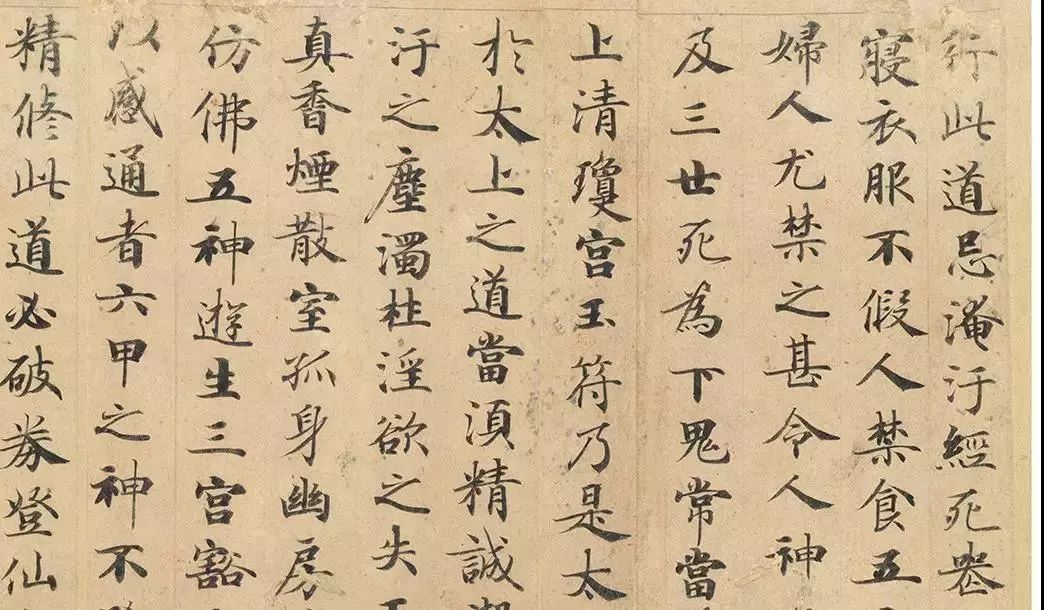 行此道忌淹汙經死喪
寢衣服不假人禁食五
婦人尤禁之甚令人神
及三世死為下鬼常當
上清瓊宮玉符乃是太
於太上之道當須精誠
汙之塵濁杜淫欲之失
真香煙散室孤身幽房
仿佛五神遊生三宮豁
以感通者六甲之神不
精修此道必破券登仙